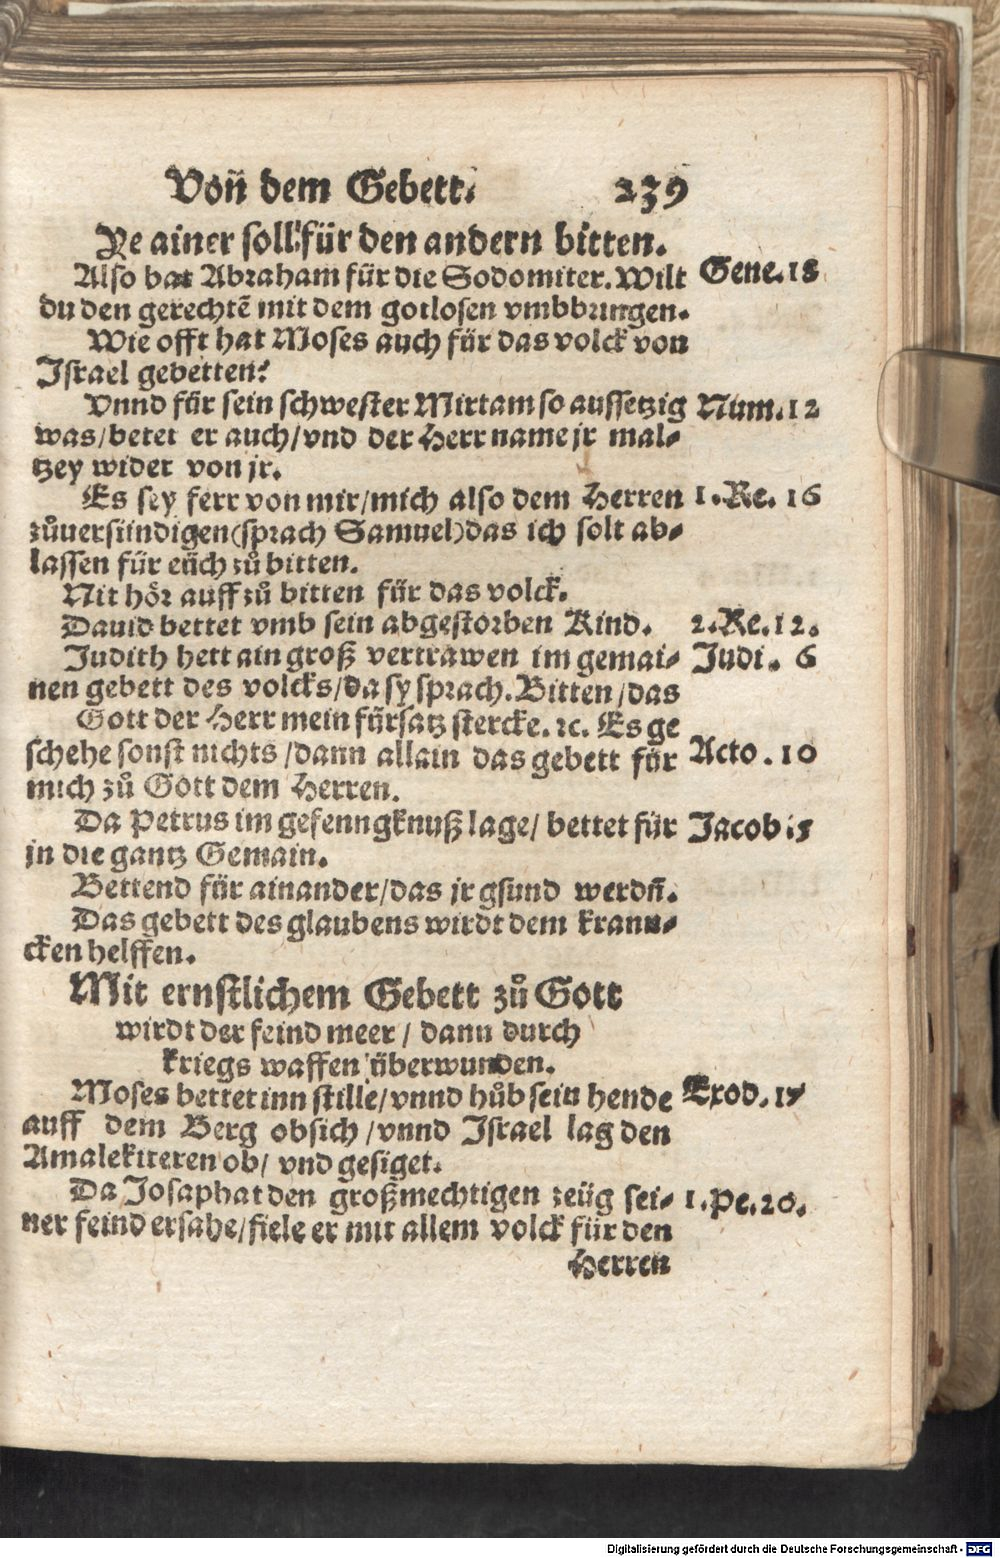 Von̄ dem Gebett. 239
Ye ainer soll für den andern bitten.
Also bat Abraham für die Sodomiter. Wilt Gene. 18
du den gerechtē mit dem gotlosen vmbbringen.
Wie offt hat Moses auch für das volck von
Israel gebetten?
Vnnd für sein schwester Miriam so aussetzig Num. 12
was/ betet er auch/ vnd der Herr name jr mal-
tzey wider von jr.
Es sey ferr von mir/ mich also dem Herren 1. Re. 16
zůuersündigen (sprach Samuel) das ich solt ab-
lassen für eüch zů bitten.
Nit hör auff zů bitten für das volck.
Dauid bettet vmb sein abgestorben Kind. 2. Re. 12.
Judith hett ain groß vertrawen im gemai- Judi. 6
nen gebett des volcks/ da sy sprach. Bitten/ das
Gott der Herr mein fürsatz stercke. ꝛc. Es ge
schehe sonst nichts/ dann allain das gebett für Acto. 10
mich zů Gott dem Herren.
Da Petrus im gefenngknuß lage/ bettet für Jacob. 5
jn die gantz Gemain.
Bettend für ainander/ das jr gsund werdn̄.
Das gebett des glaubens wirdt dem krann-
cken helffen.
Mit ernstlichem Gebett zů Gott
wirdt der feind meer/ dann durch
kriegs waffen überwunden.
Moses bettet inn stille/ vnnd hůb sein hende Exod. 17
auff dem Berg obsich/ vnnd Israel lag den
Amalekiteren ob/ vnd gesiget.
Da Josaphat den großmechtigen zeüg sei- 1. Pe. 20.
ner feind ersahe/ fiele er mit allem volck für den
Herren
Digitalisierung gefördert durch die Deutsche Forschungsgemeinschaft - DFG